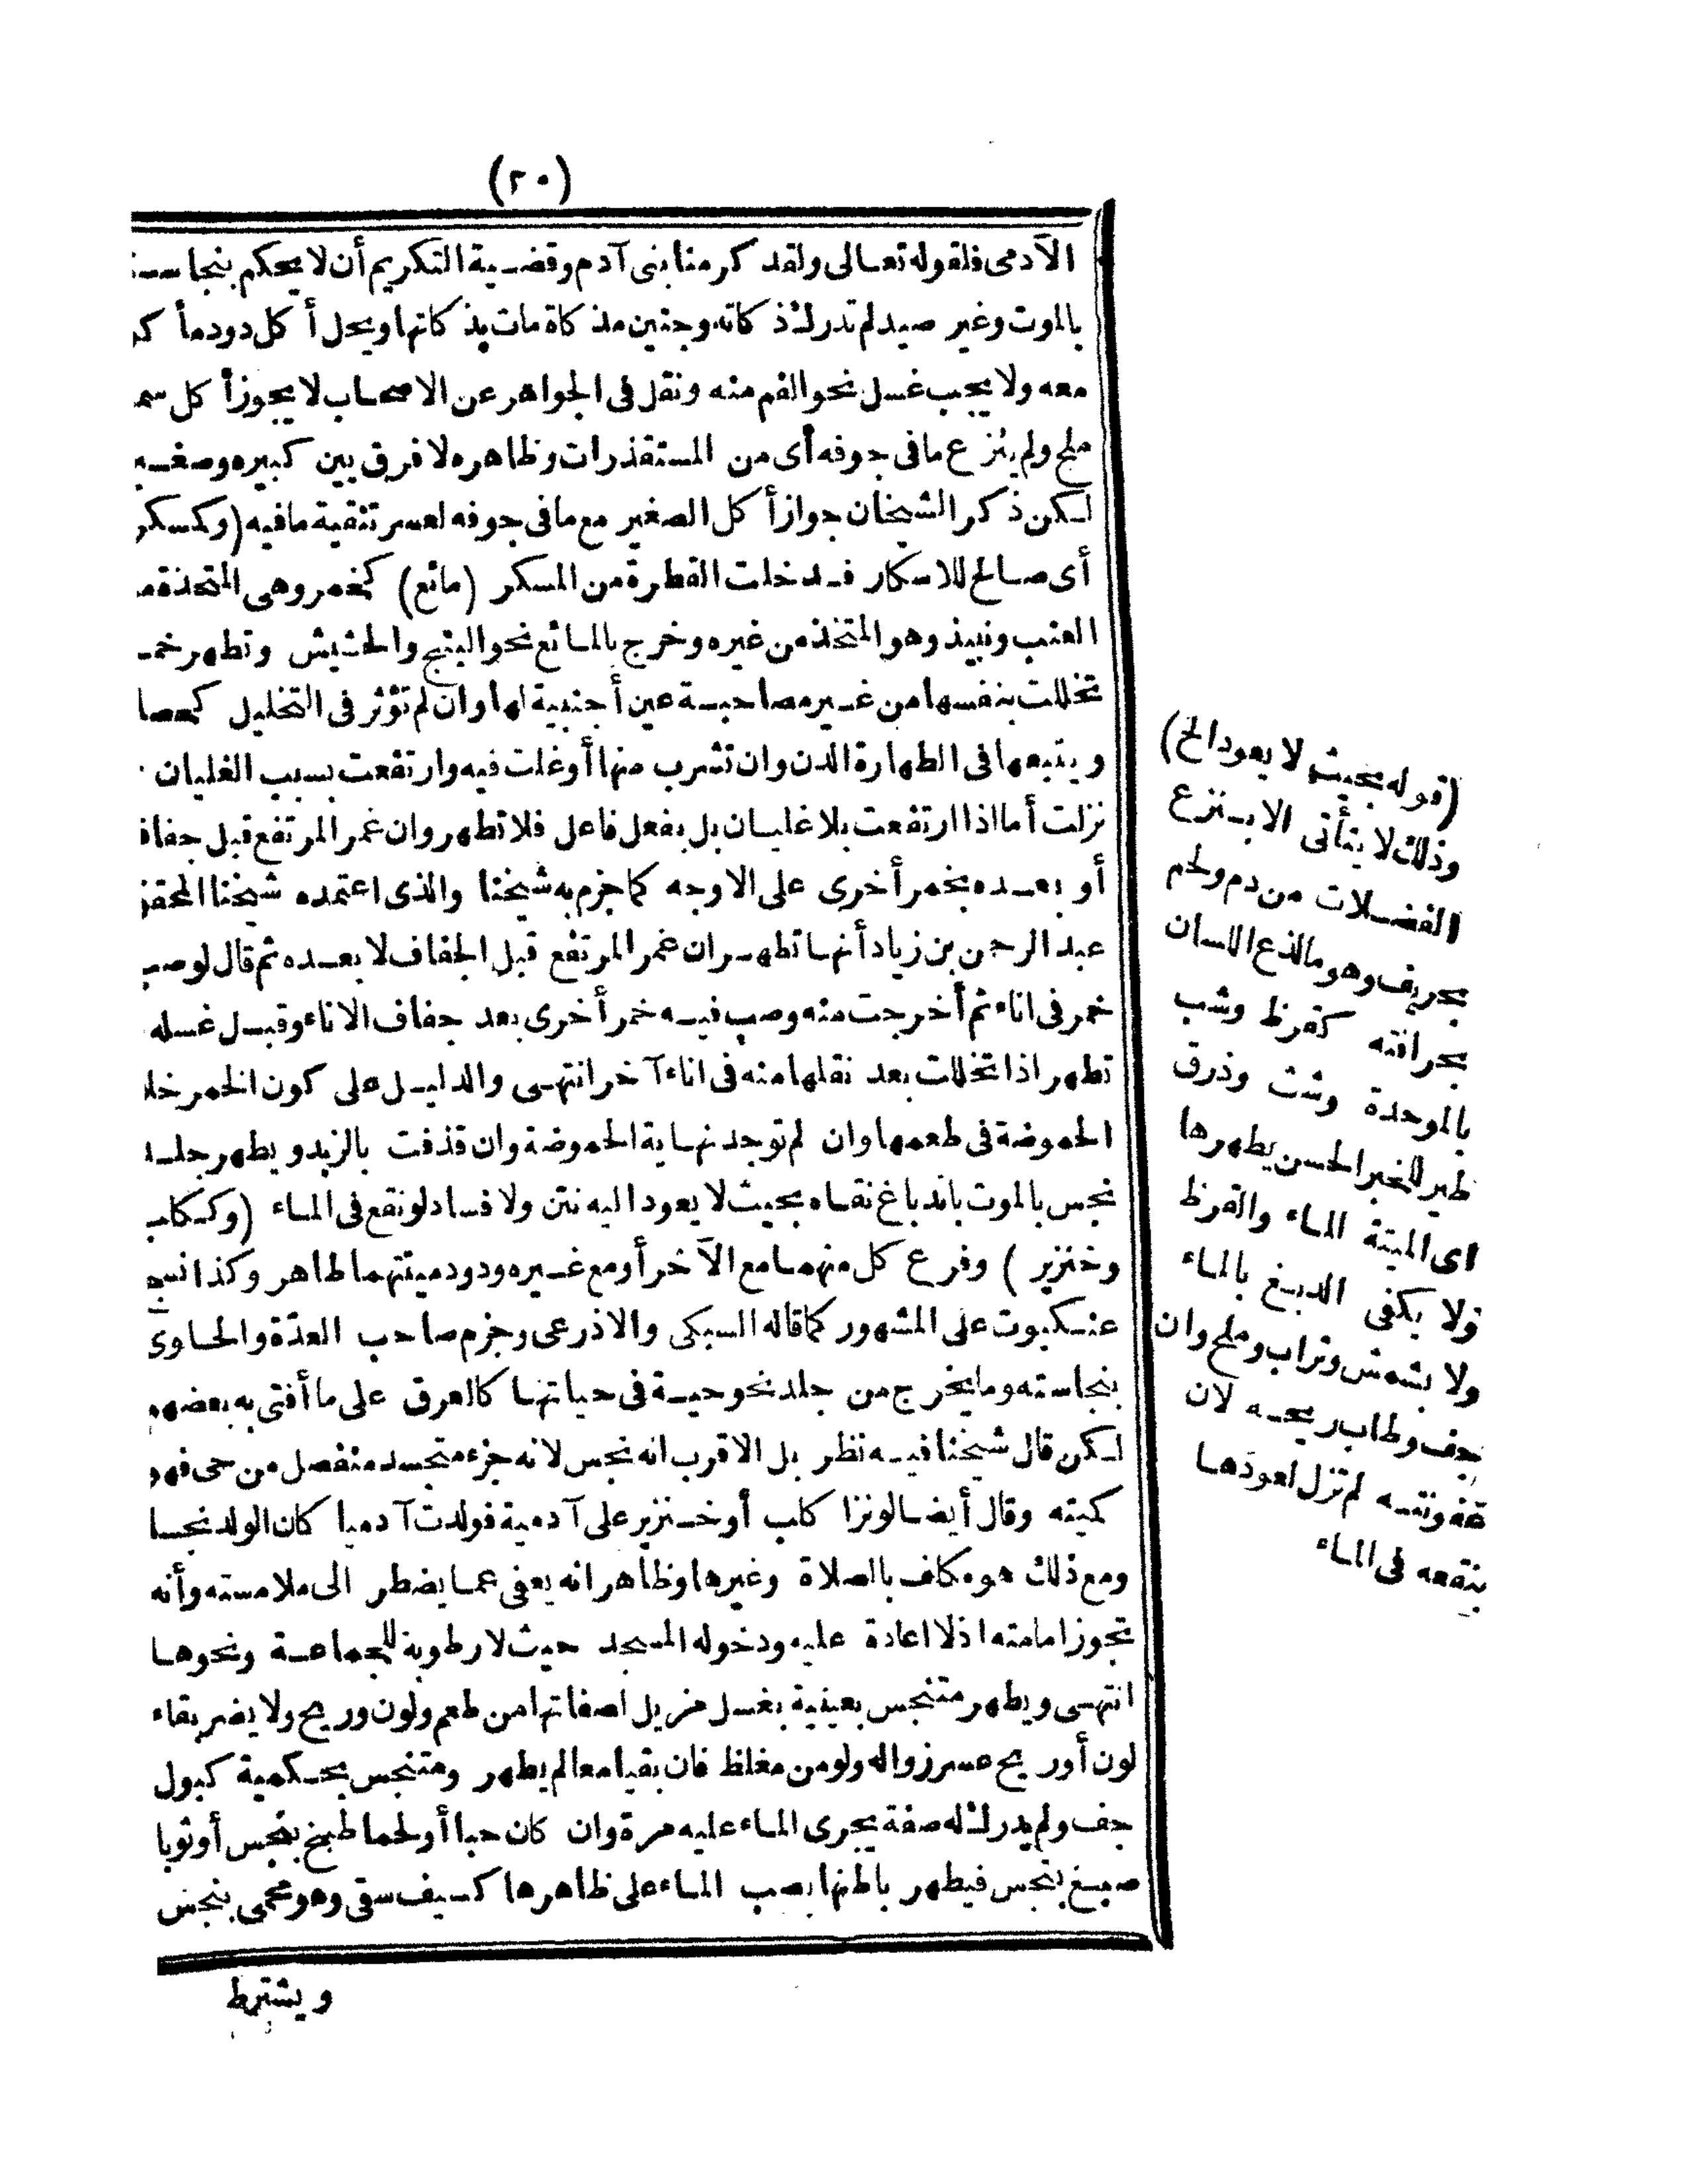 (٢٠)
الآدمى فلقوله تعالى ولقد كرمنا بنى آدم وقضية التكريم أن لا يحكم
بالموت وغير صيد لم تدرك ذكاته وجنين مذكاة مات بذكاتها ويحل أكل دود مأكو
معه ولا يجب غسل نحو الفم منه ونقل فى الجواهر عن الاصحاب لا يجوز أكل سم
ملح ولم ينزع ما فى جوفه أى من المستقذرات وظاهره لا فرق بين كبيره وصغـ
لكن ذكر الشيخان جواز أكل الصغير مع ما فى جوفه لعسر تنقية ما فيه (وكمسكر
أى صالح للاسكار فدخلت القطرة من المسكر (مائع) كخمر وهى المتخذة مـ
العنب ونبيذ وهو المتخذ من غيره وخرج بالمائع نحو البنج والحشيش وتطهر خمـ
تخللت بنفسها من غير مصاحبة عين أجنبية لها وان لم تؤثر فى التخليل كحصا
ويتبعها فى الطهارة الدن وان تشرب منها أو غلت فيه وارتفعت بسبب الغليان
نزلت أما اذا ارتفعت بلا غليان بل بفعل فاعل فلا تطهر وان غمر المرتفع قبل جفاف
أو بعده بخمر أخرى على الاوجه كما جزم به شيخنا والذى اعتمده شيخنا المحقق
عبد الرحمن بن زياد أنها تطهر ان غمر المرتفع قبل الجفاف لا بعده ثم قال لو صب
خمر فى اناء ثم أخرجت منه وصب فيه خمر أخرى بعد جفاف الاناء وقبل غسله
تطهر اذا تخللت بعد نقلها منه فى اناء آخر انتهى والدليل على كون الخمر خلا
الحموضة فى طعمها وان لم توجد نهاية الحموضة وان قذفت بالزبد ويطهر جلد
نجس بالموت باندباغ نقاه بحيث لا يعود اليه نتن ولا فساد لو نقع فى الماء (وككلب
وخنزير) وفرع كل منهما مع الآخر أو مع غيره ودود ميتتهما طاهر وكذا نسج
عنكبوت على المشهور كما قاله السبكى والاذرعى وجزم صاحب العدّة والحاوى
بنجاسته وما يخرج من جلد نحو حية فى حياتها كالعرق على ما أفتى به بعضهم
لكن قال شيخنا فيه نظر بل الاقرب انه نجس لانه جزء متجسد منفصل من حى فهو
كميتته وقال أيضا لو نزا كلب أو خنزير على آدمية فولدت آدميا كان الولد نجسا
ومع ذلك هو مكلف بالصلاة وغيرها وظاهر انه يعفى عما يضطر الى ملامسته وأنه
تجوز امامته اذ لا اعادة عليه ودخوله المسجد حيث لا رطوبة للجماعة ونحوها
انتهى ويطهر متنجس بعينية بغسل مزيل لصفاتها من طعم ولون وريح ولا يضر بقاء
لون أو ريح عسر زواله ولو من مغلظ فان بقيا معا لم يطهر ومتنجس بحكمية كبول
جف ولم يدرك له صفة بجرى الماء عليه مرة وان كان حبا أو لحما طبخ بنجس أو ثوبا
صبغ بنجس فيطهر باطنها بصب الماء على ظاهرها كسيف سقى وهو محمى بنجس
ويشترط
(قوله بحيث لا يعود الخ)
وذلك لا يتأتى الا بنزع
الفضلات من دم ولحم
بحريف وهو ما لذع اللسان
بحرافته كقرظ وشب
بالموحدة وشث وذرق
طير للخبر الحسن يطهرها
اى الميتة الماء والقرظ
ولا يكفى الدبغ بالماء
ولا بشمس وتراب وملح وان
جف وطاب ريحه لان
عفونته لم تزل لعودها
بنقعه فى الماء